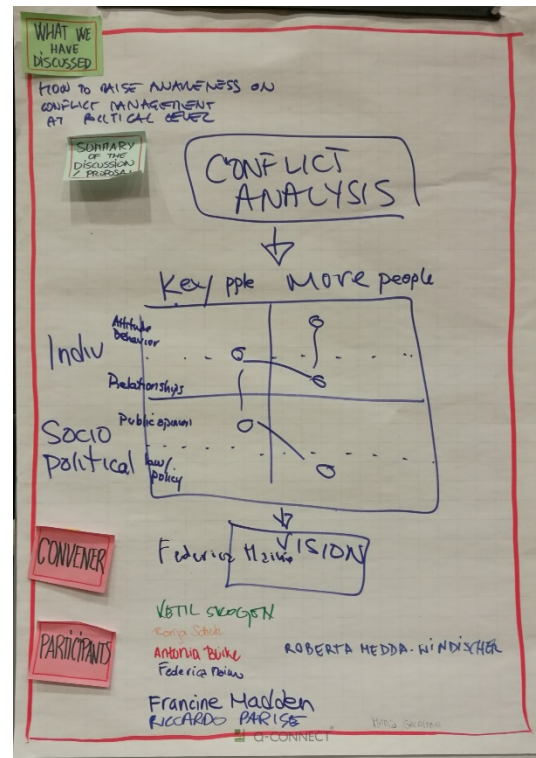 WHAT WE
HAVE
DISCUSSED
HOW TO RAISE AWARENESS ON
CONFLICT MANAGEMENT
AT POLITICAL LEVEL
SUMMARY
OF THE
DISCUSSION
/ PROPOSAL
CONFLICT
ANALYSIS
Key pple More people
Indiv
Attitude
behavior
Relationships
Socio
political
Public opinion
law/
policy
VISION
CONVENER
Federica
PARTICIPANTS
KETIL SKOGEN
Ronja
Antonia
Federica
ROBERTA MEDDA-WINDISCHER
Francine Madden
RICCARDO PARISE
Q-CONNECT